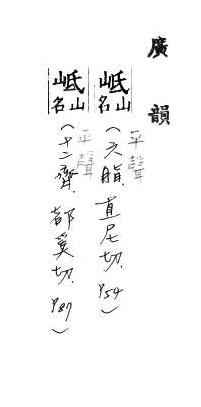 廣韻
岻山名
平聲
(六脂.直尼切.P54)
岻山名
平聲
(十二齊.都奚切.P87)